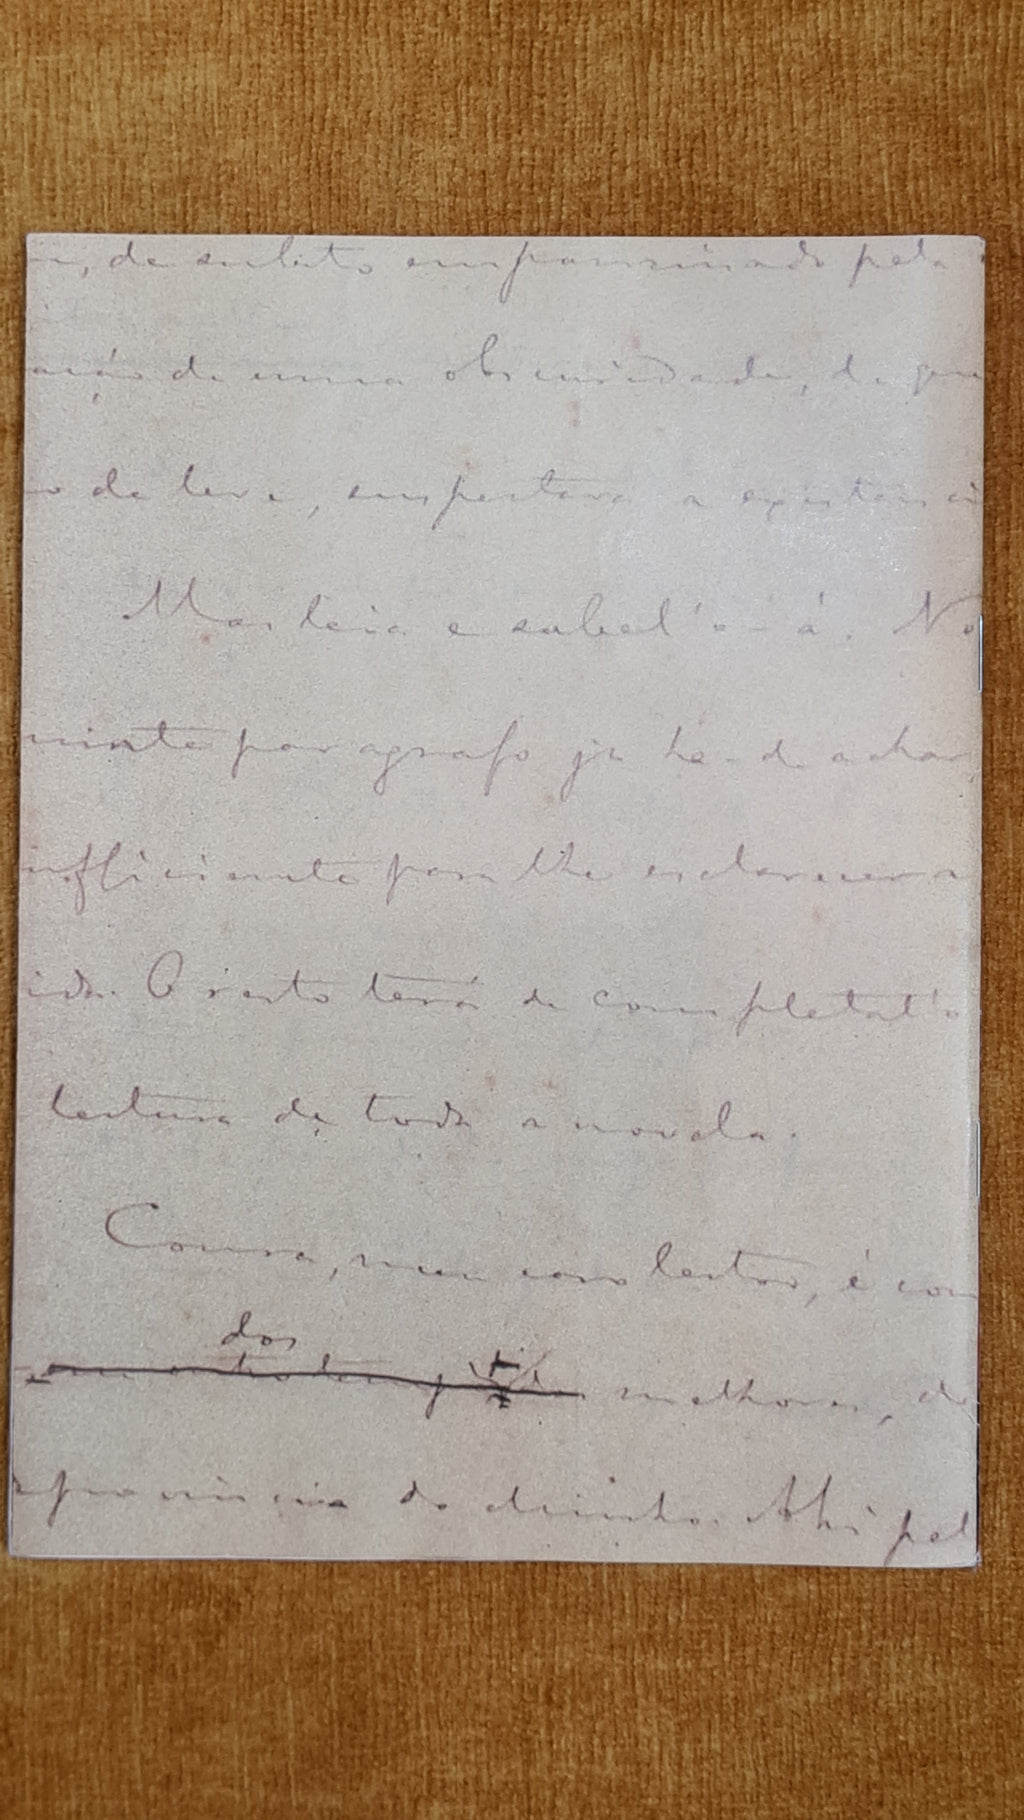 , de subito empanzinado pela
de uma obscuridade, de que
de leve, suspeitava a existenci
Mas leia e sabel'o-á. No
uinte paragrafo já ha-de achar
ufficiente para lhe esclarecer a
ida. O resto terá de completal'o
leitura de toda a novela.
Coura, meu caro leitor, é con
dos
melhores, da
provincia do Minho. Ahi pel